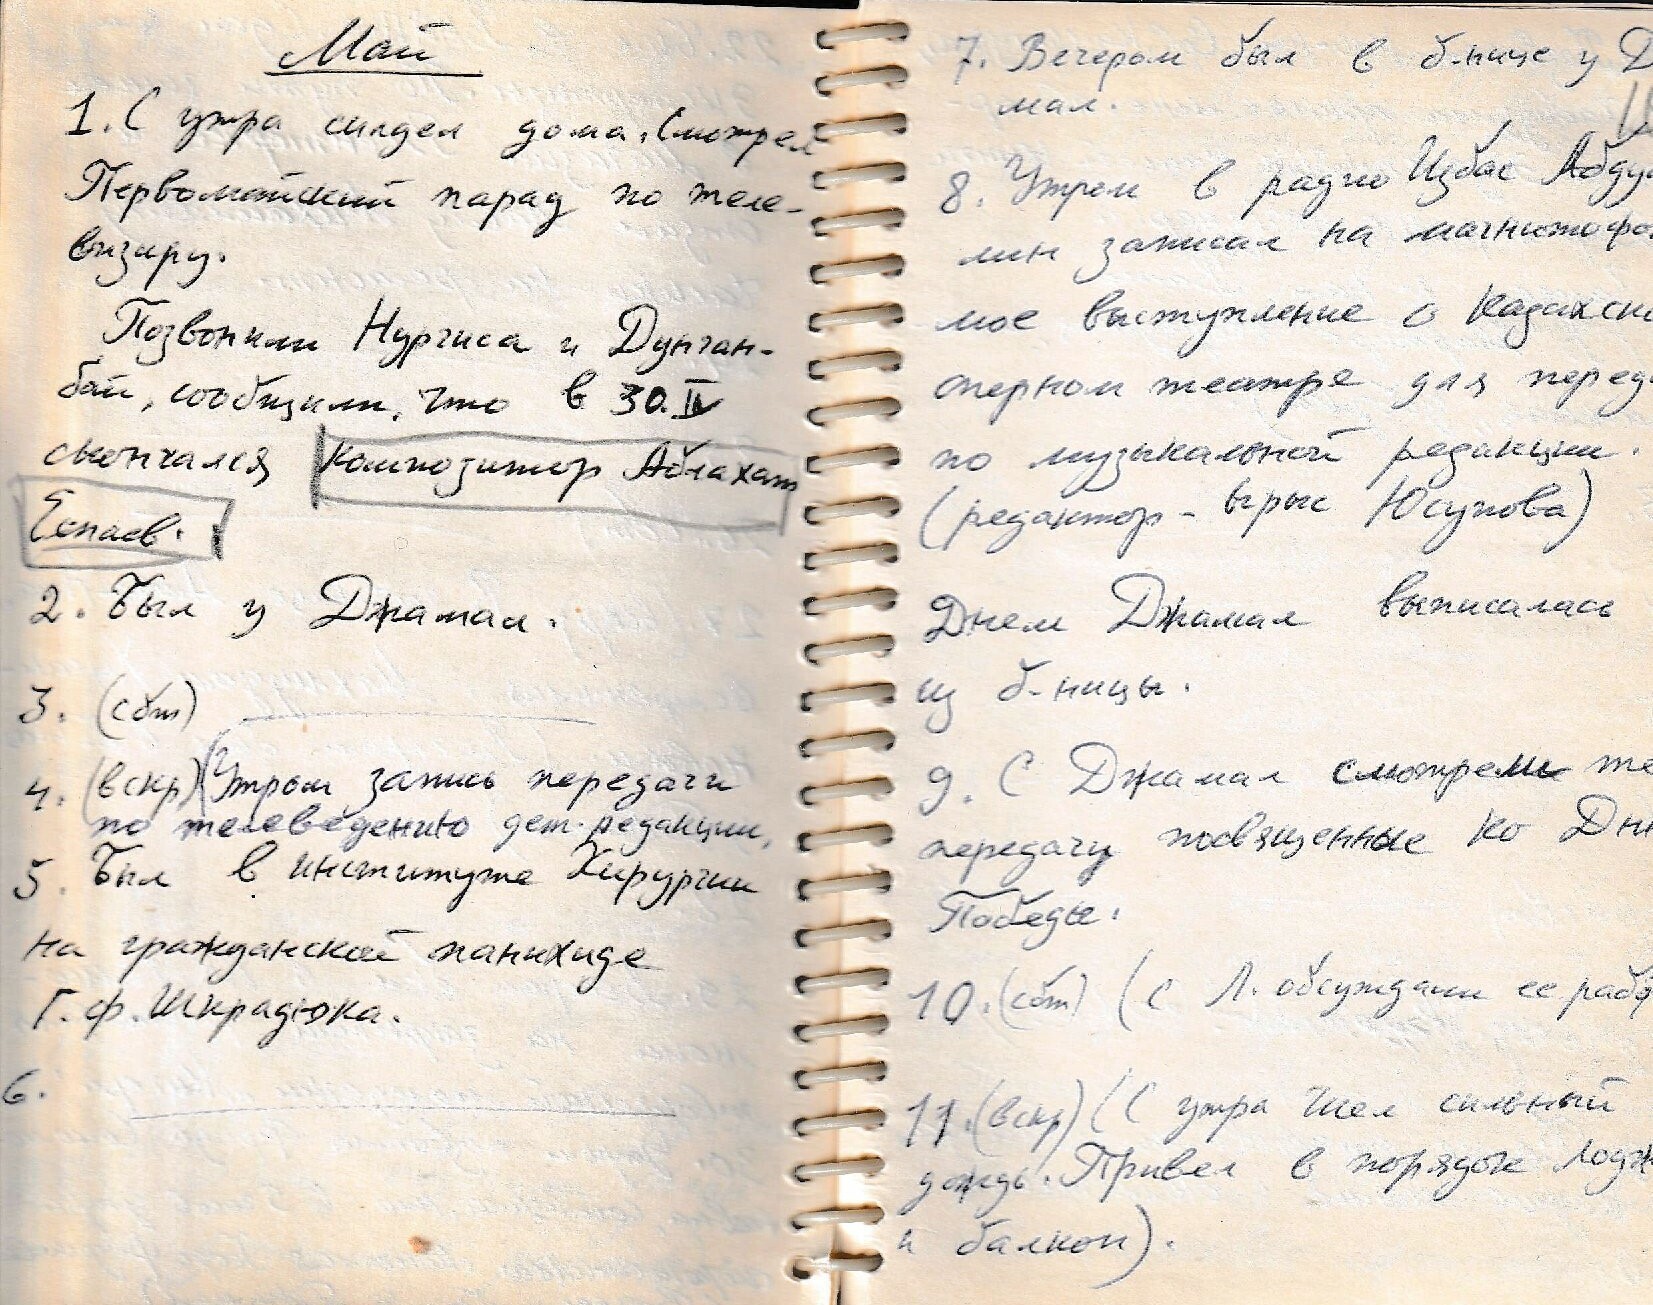 Май
1. С утра сидел дома. Смотрел
Первомайский парад по теле-
визиру.
Позвонили Нургиса и Дунган-
бай, сообщили, что в 30.IV
скончался композитор Аблахат
Еспаев.
2. Был у Джамал.
3. (сбт)
4. (вскр) (Утром запись передачи
по телеведению дет. редакции,
5. Был в институте Хирургии
на гражданской панихиде
Г. Ф. Шкрадюка.
6.
7. Вечером был в б-нице у Д
мал.
8. Утром в радио Избас Абду
лин записал на магнитофо
мое выступление о Казахск
оперном театре для перед
по музыкальной редакции.
(редактор - Ырыс Юсупова)
Днем Джамал выписалась
из б-ницы.
9. С Джамал смотрели те
передачу посвященные ко Дн
Победы.
10. (сбт) (С Л. обсуждали ее раб
11. (вскр) (С утра шел сильный
дождь. Привел в порядок лодж
и балкон).